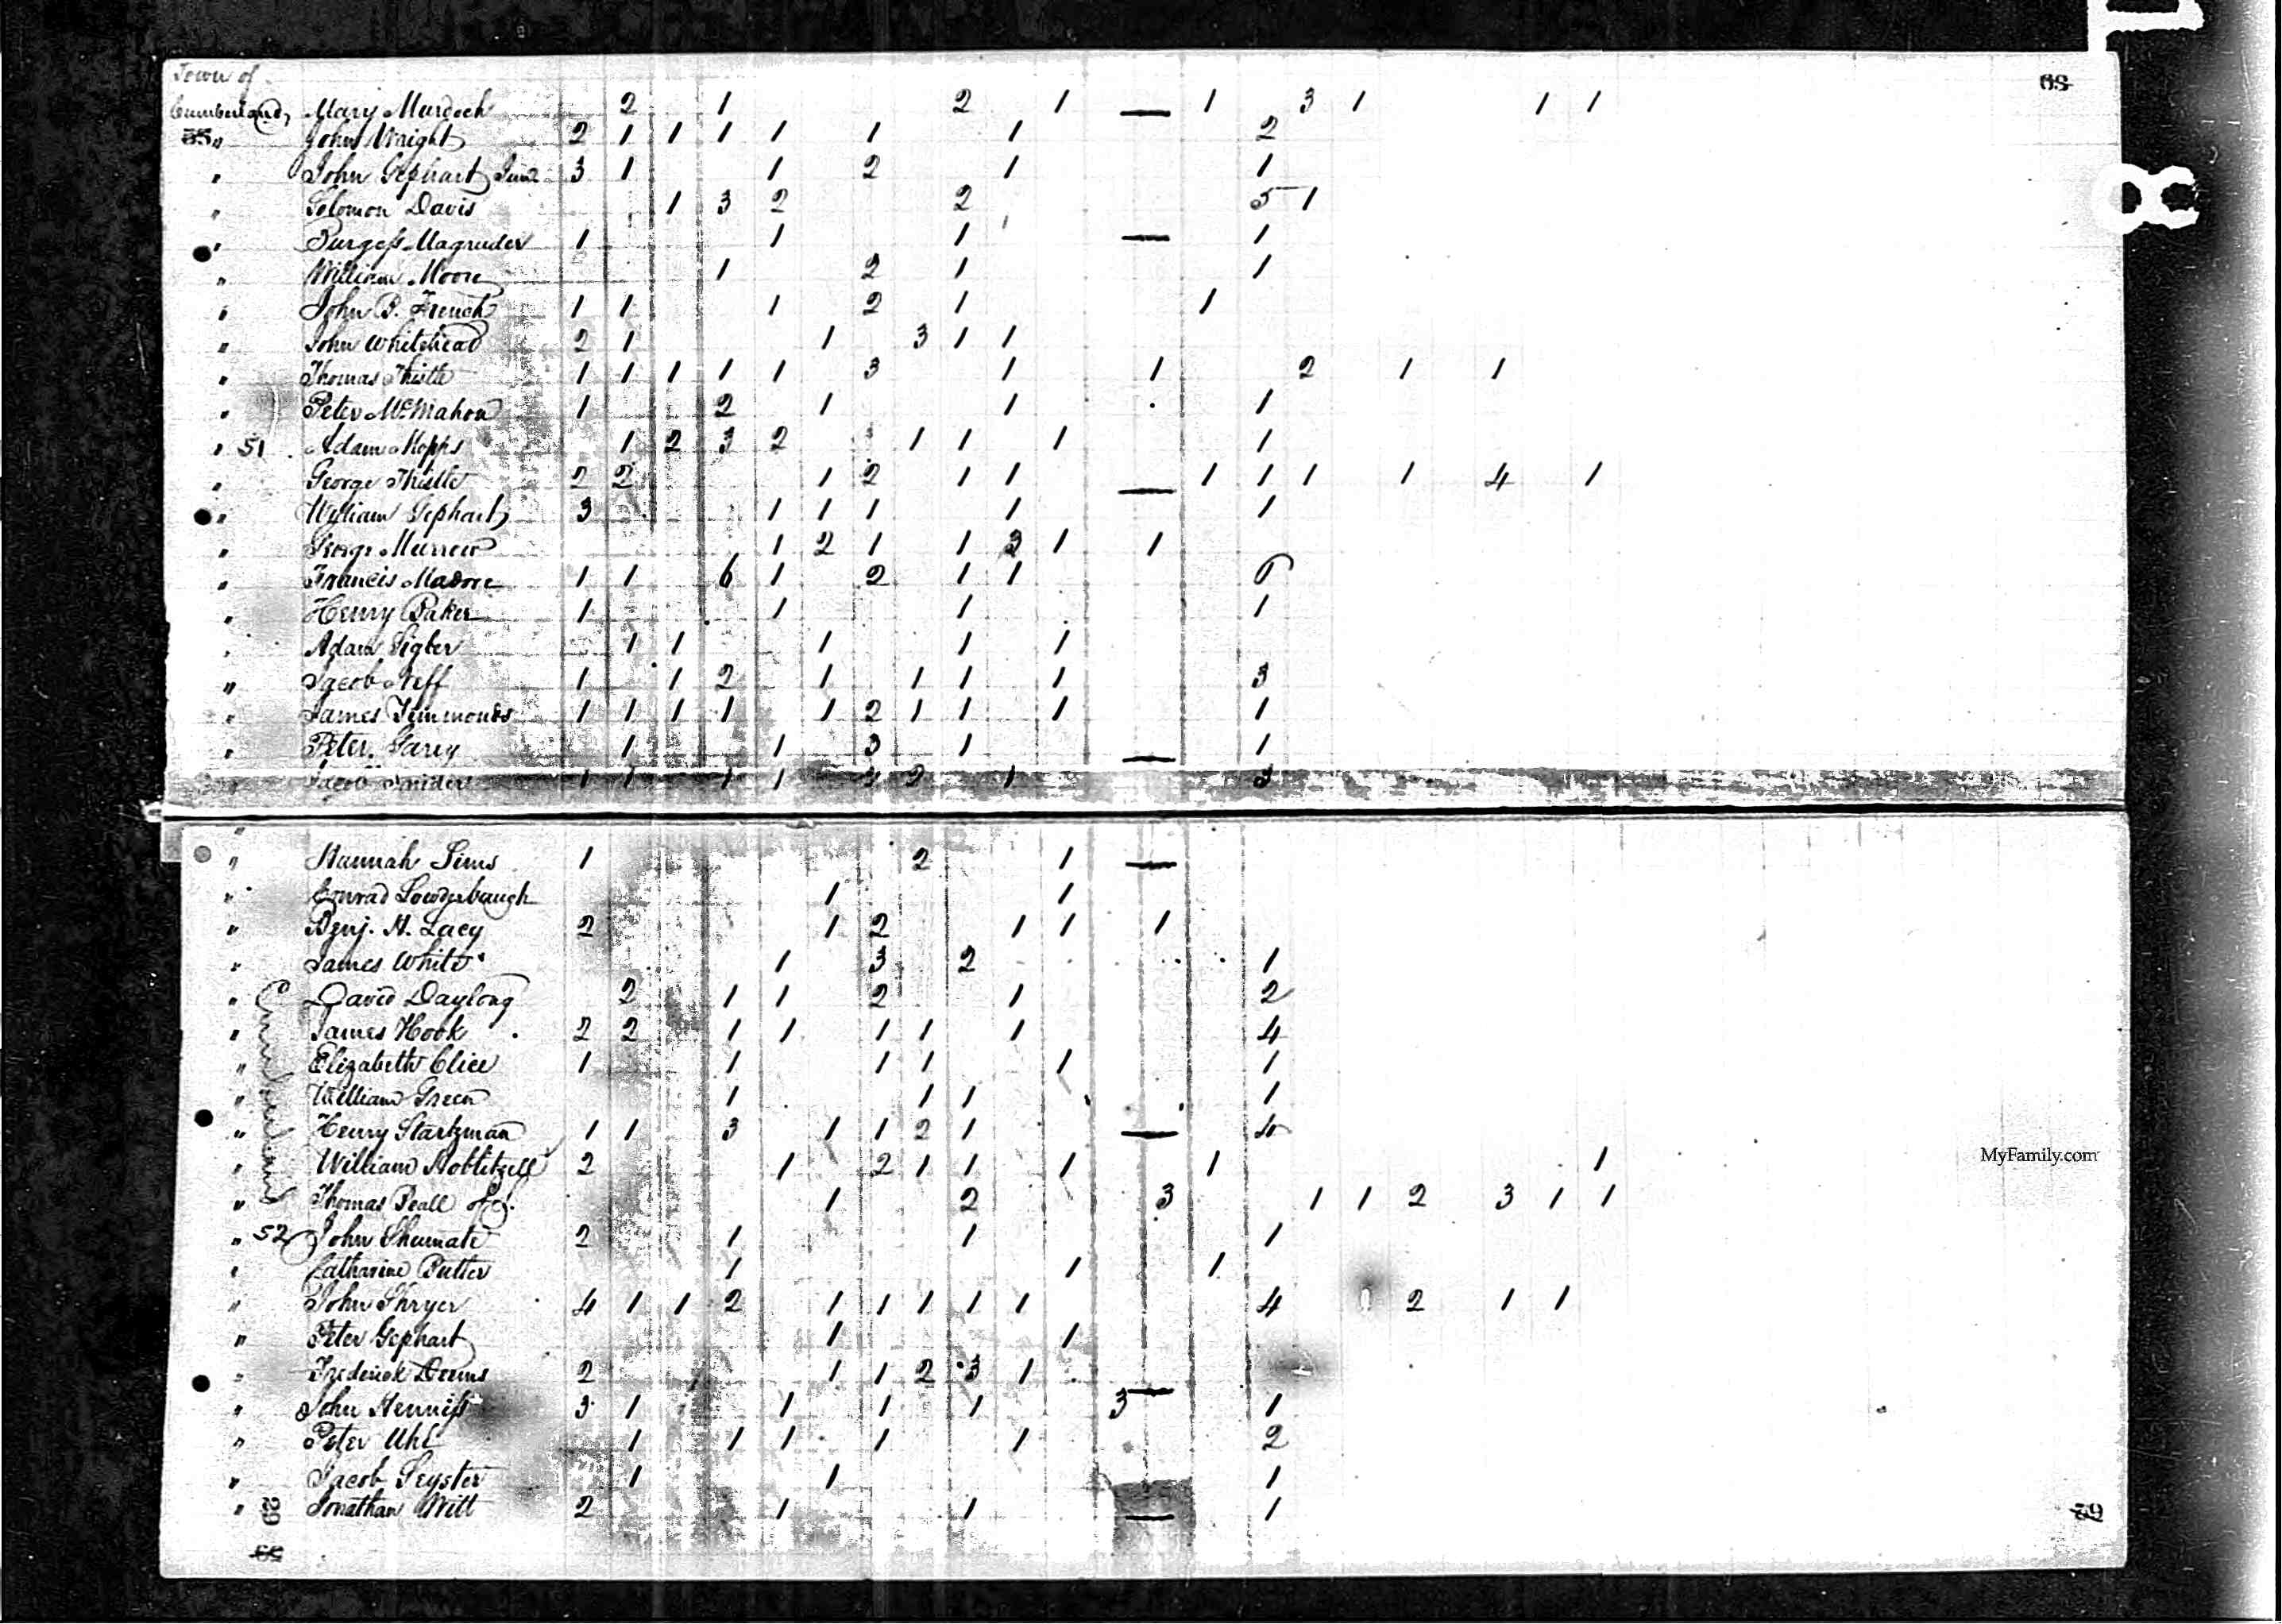 Town of
Cumberland, Mary Murdoch 2 1 2 1 — 1 3 1 1 1
55 " John Wright 2 1 1 1 1 1 1 2
" John Gephart Junr 3 1 1 2 1 1
" Solomon Davis 1 3 2 2 5 1
" Burgess Magruder 1 1 1 — 1
" William Moore 1 2 1 1
" John B. French 1 1 1 2 1 1
" John Whitehead 2 1 1 3 1 1
" Thomas Thistle 1 1 1 1 1 3 1 1 2 1 1
" Peter McMahon 1 2 1 1 1
" 51 Adam Hopps 1 2 3 2 1 1 1 1
" George Thistle 2 2 1 2 1 1 — 1 1 1 1 4 1
" William Gephart 3 1 1 1 1 1
" George Murrow 1 2 1 1 2 1 1
" Francis Madore 1 1 6 1 2 1 1
" Henry Baker 1 1 1 1
" Adam Sigler 1 1 1 1 1
" Jacob Neff 1 1 2 1 1 1 1 3
" James Timmonds 1 1 1 1 1 2 1 1 1 1
" Peter Garey 1 1 3 1 — 1
Jacob Snider 1 1 1 1 2 1 3
" Hannah Sims 1 2 1 —
" Conrad Lowderbaugh 1 1
" Benj. H. Lacy 2 1 2 1 1 1
" James White 1 3 2 1
" David Daylong 2 1 1 2 1 2
" James Hook 2 2 1 1 1 1 1 4
" Elizabeth Clice 1 1 1 1 1 1
" William Green 1 1 1 1
" Henry Startzman 1 1 3 1 1 2 1 — 4
" William Hoblitzell 2 1 2 1 1 1 1 1
" Thomas Beall 1 2 3 1 1 2 3 1 1
" 52 John Shumate 2 1 1 1
" Catharine Butler 1 1 1
" John Shryer 4 1 1 2 1 1 1 1 1 4 1 2 1 1
" Peter Gephart 1 1
" Frederick Deems 2 1 1 2 3 1
" John Henniss 3 1 1 1 1 3 — 1
" Peter Uhl 1 1 1 1 1 2
" Jacob Seyster 1 1 1
" Jonathan Witt 2 1 1 — 1
Cumberland
MyFamily.com